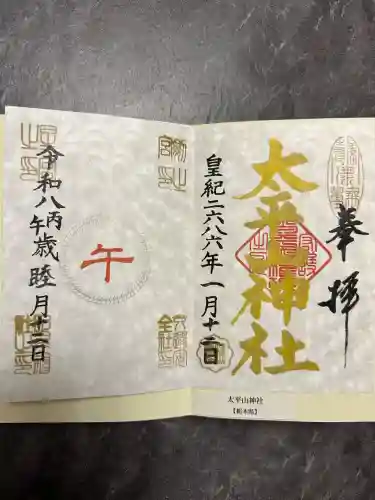 奉拝
太平山神社
皇紀二六八六年一月十二日
太平山神社
【栃木県】
午
令和八丙午歳睦月十二日